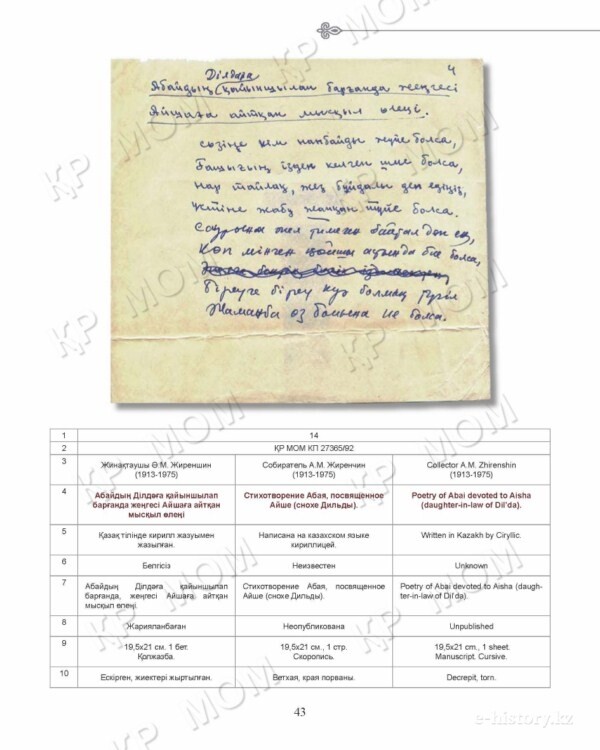 4
Ділдаға
Абайдың қайыншылап барғанда жеңгесі
Айшаға айтқан мысқыл өлеңі.
сөзіңе кем нанбайды жүйе болса,
келген болса,
Нар тайлақ, жез бұйдалы ден едіңіз,
Үстіне жабу жапқан түйе болса.
Сауырын жел тимеген байтал ден ең,
Көп мінген қойшы ауында бие болса,
Біреуге біреу күә болмақ
Жаманба өз бойыңа ие болса.
1 14
2 ҚР МОМ КП 27365/92
3 Жинақтаушы Ә.М. Жиреншин (1913-1975) Собиратель А.М. Жиренчин (1913-1975) Collector A.M. Zhirenshin (1913-1975)
4 Абайдың Ділдәға қайыншылап барғанда жеңгесі Айшаға айтқан мысқыл өлеңі Стихотворение Абая, посвященное Айше (снохе Дильды). Poetry of Abai devoted to Aisha (daughter-in-law of Dil'da).
5 Қазақ тілінде кирилл жазуымен жазылған. Написана на казахском языке кириллицей. Written in Kazakh by Ciryllic.
6 Белгісіз Неизвестен Unknown
7 Абайдың Ділдәға қайыншылап барғанда, жеңгесі Айшаға, айтқан мысқыл өлеңі. Стихотворение Абая, посвященное Айше (снохе Дильды). Poetry of Abai devoted to Aisha (daugh-ter-in-law of Dil'da).
8 Жарияланбаған Неопубликована Unpublished
9 19,5x21 см. 1 бет. Қолжазба. 19,5x21 см., 1 стр. Скоропись. 19,5x21 cm., 1 sheet. Manuscript, Cursive.
10 Ескірген, жиектері жыртылған. Ветхая, края порваны. Decrepit, torn.
43
e-history.kz
ҚР МОМ